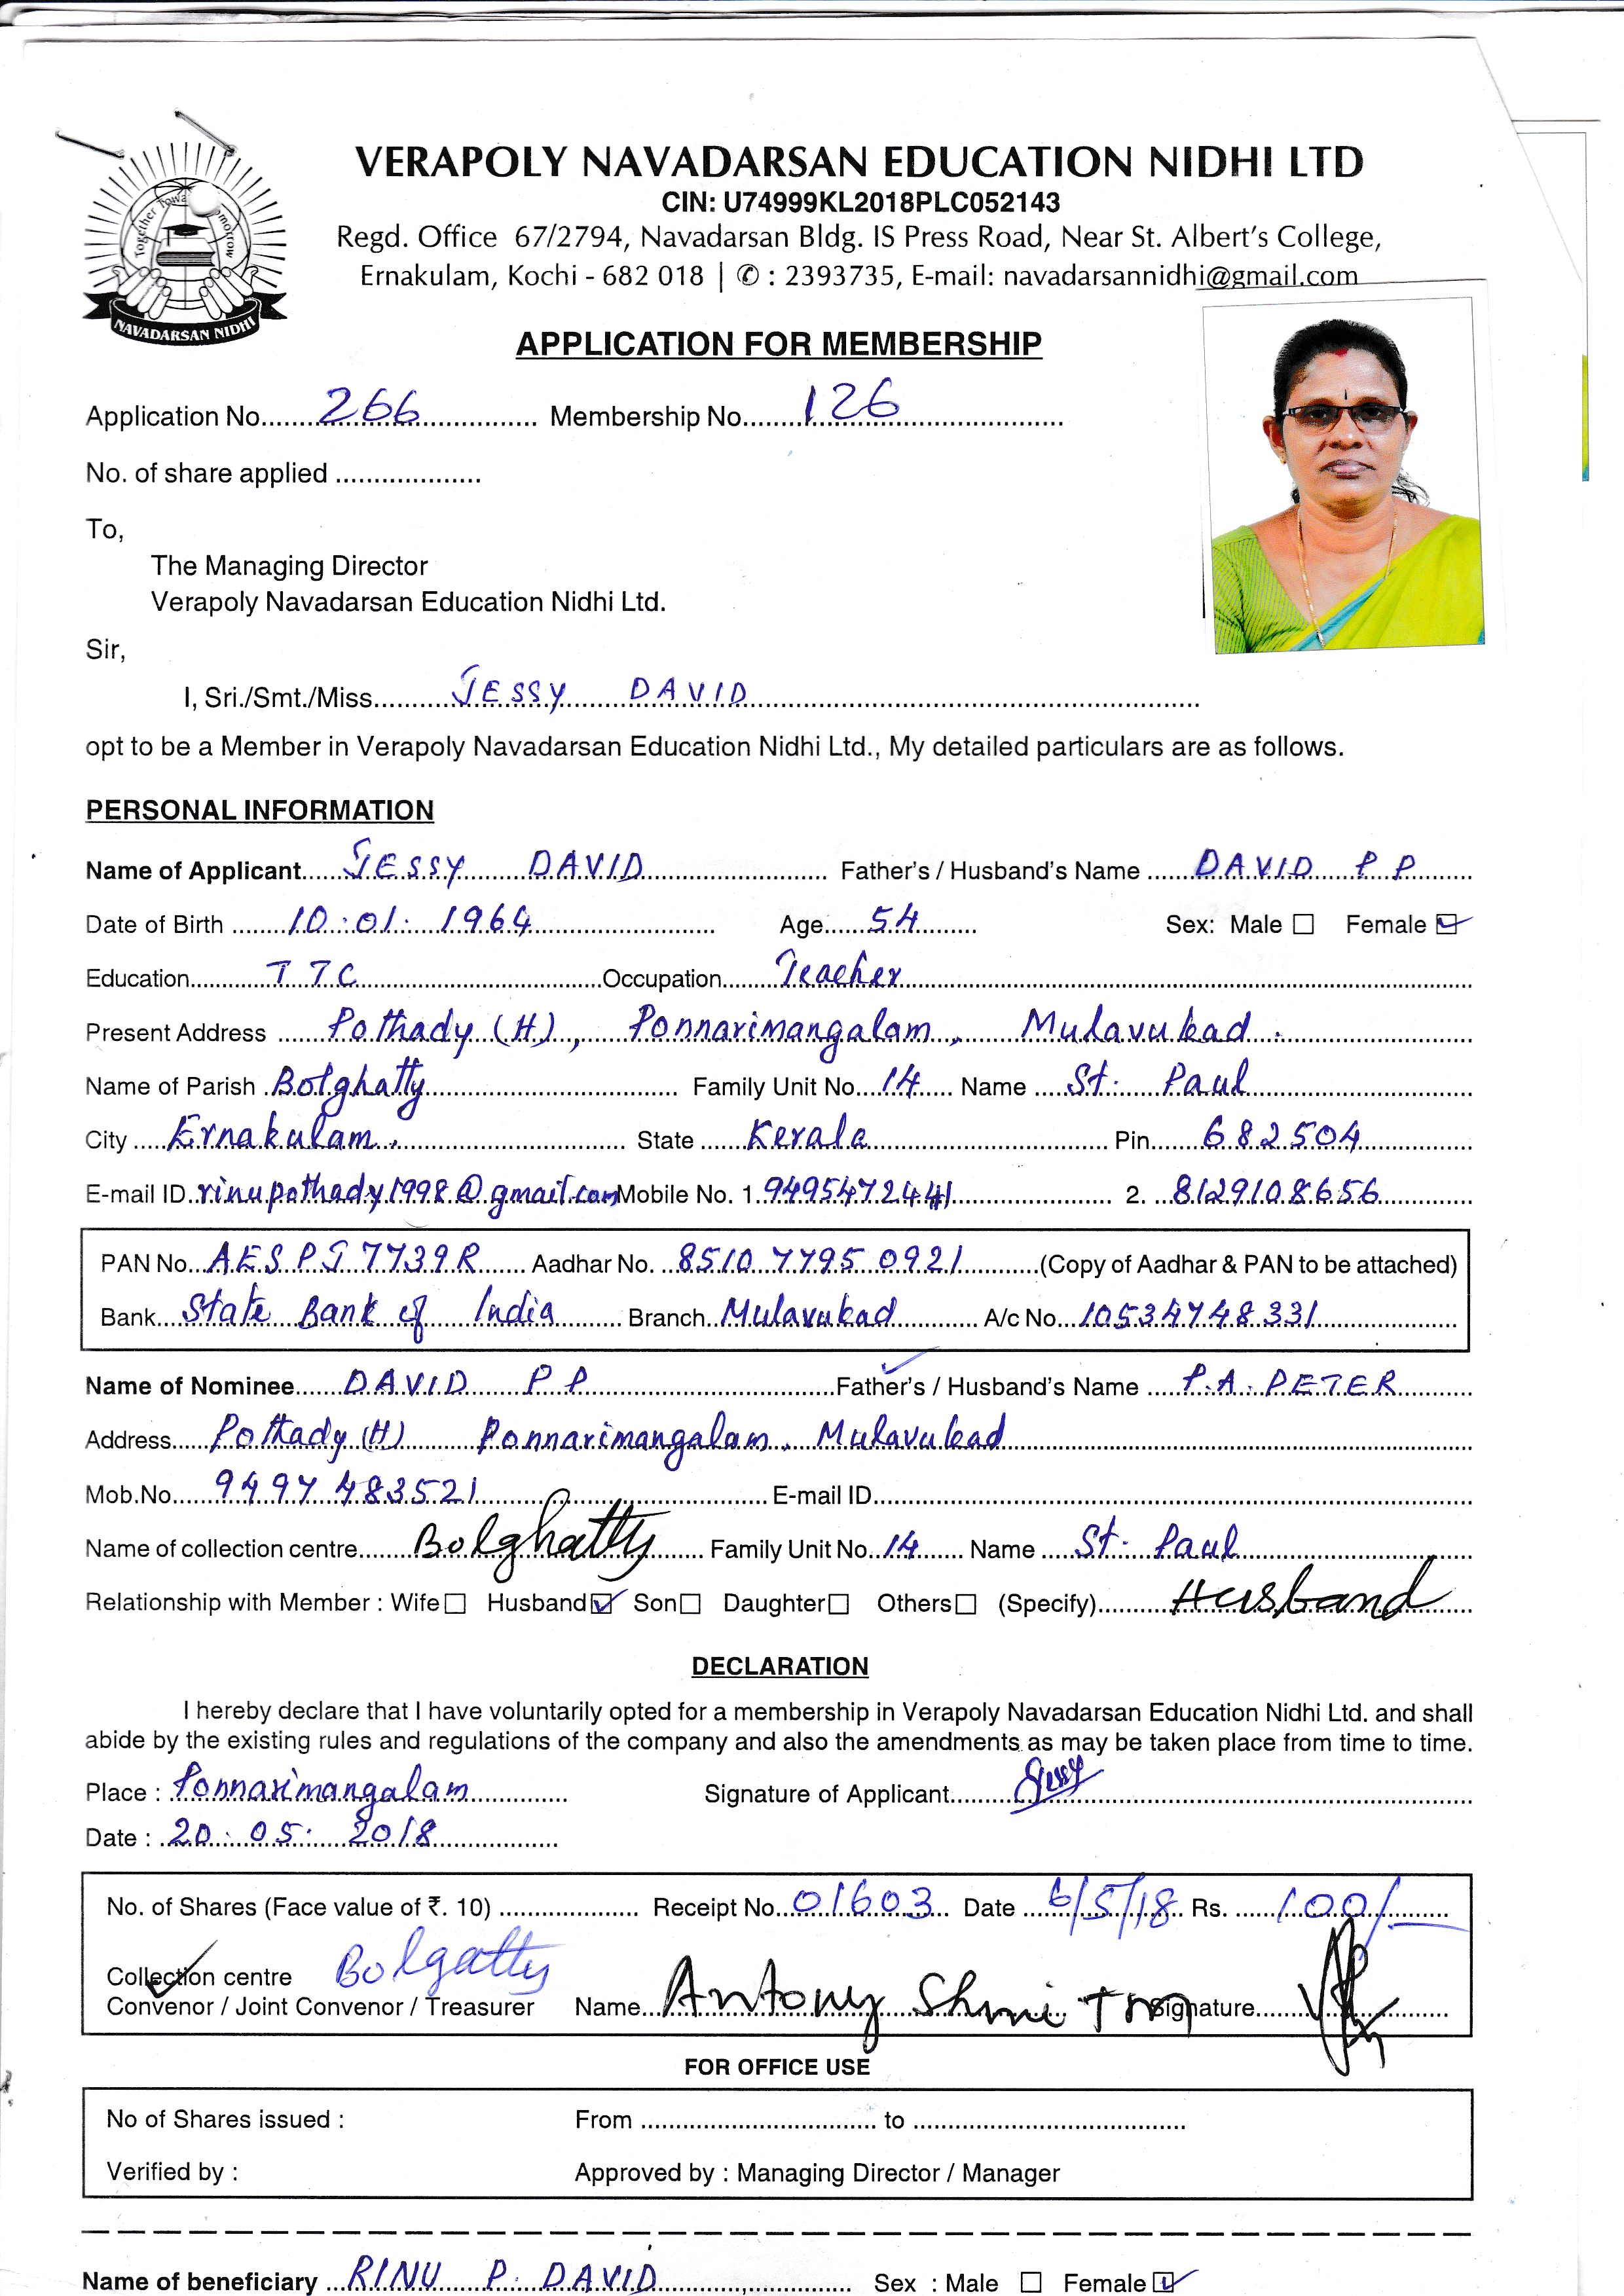 Together Towa
morrow
NAVADARSAN NIDHI
VERAPOLY NAVADARSAN EDUCATION NIDHI LTD
CIN: U74999KL2018PLC052143
Regd. Office 67/2794, Navadarsan Bldg. IS Press Road, Near St. Albert's College,
Ernakulam, Kochi - 682 018 | ✆ : 2393735, E-mail: navadarsannidhi@gmail.com
APPLICATION FOR MEMBERSHIP
Application No. 266 Membership No. 126
No. of share applied
To,
The Managing Director
Verapoly Navadarsan Education Nidhi Ltd.
Sir,
I, Sri./Smt./Miss. JESSY DAVID
opt to be a Member in Verapoly Navadarsan Education Nidhi Ltd., My detailed particulars are as follows.
PERSONAL INFORMATION
Name of Applicant JESSY DAVID Father's / Husband's Name DAVID P P
Date of Birth 10.01.1964 Age 54 Sex: Male ☐ Female ☑
Education TTC Occupation Teacher
Present Address Pothady (H), Ponnarimangalam, Mulavukad.
Name of Parish Bolghatty Family Unit No. 14 Name St. Paul
City Ernakulam, State Kerala Pin 682504
E-mail ID rinupothady1998@gmail.com Mobile No. 1. 9495472441 2. 8129108656
PAN No. AESPJ7739R Aadhar No. 8510 7795 0921 (Copy of Aadhar & PAN to be attached)
Bank State Bank of India Branch Mulavukad A/c No. 10534748331
Name of Nominee DAVID P P Father's / Husband's Name P.A. PETER
Address Pothady (H) Ponnarimangalam, Mulavukad
Mob.No. 9497483521 E-mail ID
Name of collection centre Bolghatty Family Unit No. 14 Name St. Paul
Relationship with Member : Wife ☐ Husband ☑ Son ☐ Daughter ☐ Others ☐ (Specify) Husband
DECLARATION
I hereby declare that I have voluntarily opted for a membership in Verapoly Navadarsan Education Nidhi Ltd. and shall
abide by the existing rules and regulations of the company and also the amendments as may be taken place from time to time.
Place : Ponnarimangalam Signature of Applicant Jessy
Date : 20.05.2018
No. of Shares (Face value of ₹. 10) Receipt No. 01603 Date 6/5/18 Rs. 100/-
Collection centre Bolgatty
Convenor / Joint Convenor / Treasurer Name Antony Signature
FOR OFFICE USE
No of Shares issued : From to
Verified by : Approved by : Managing Director / Manager
Name of beneficiary RINU P. DAVID Sex : Male ☐ Female ☑